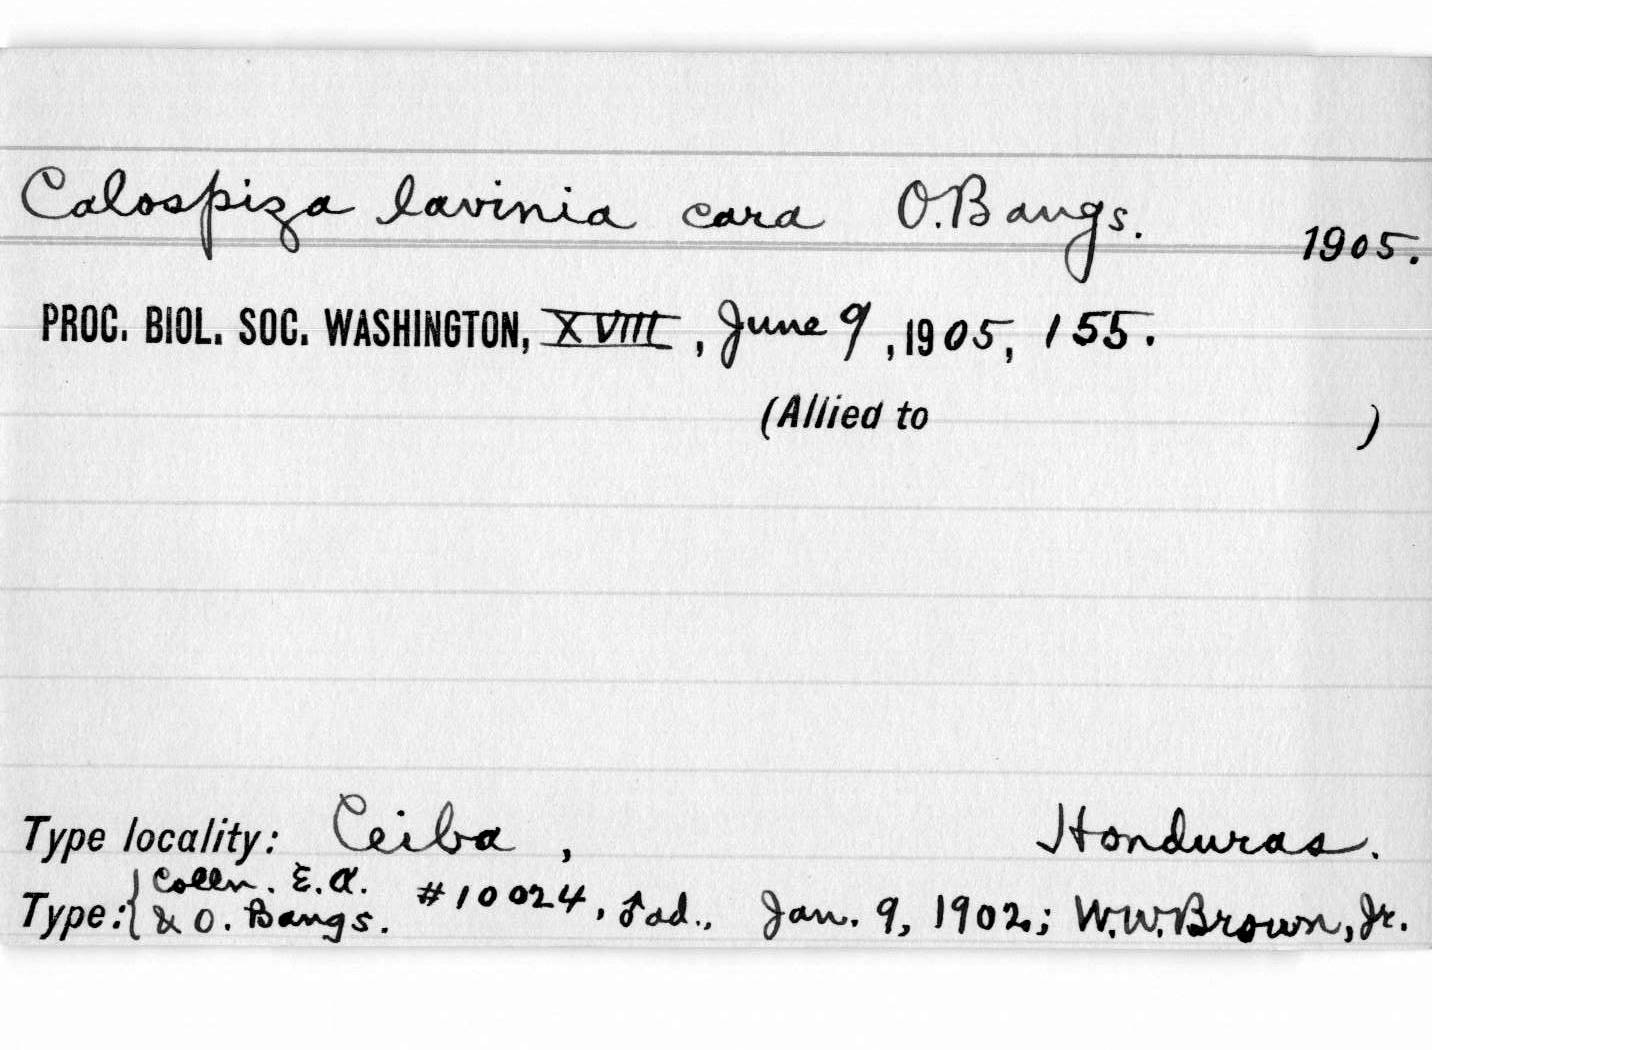 Calospiza lavinia cara O. Bangs. 1905.
PROC. BIOL. SOC. WASHINGTON, XVIII, June 9, 1905, 155.
(Allied to )
Type locality: Ceiba, Honduras.
Type: { Colln. E. A. & O. Bangs. #10024, ♂ ad., Jan. 9, 1902; W. W. Brown, Jr.